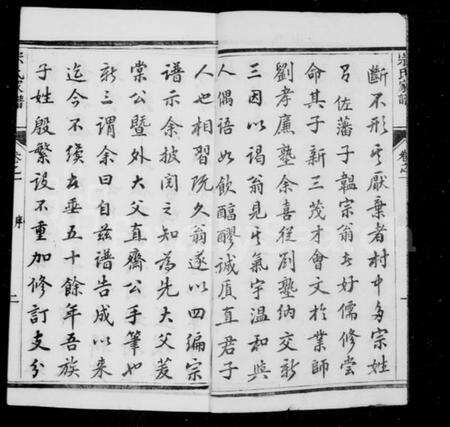 宗氏家譜
卷之一
斷不形其厭棄者村中多宗姓
呂佐藩子韞宗翁者好儒修嘗
命其子新三茂才會文於業師
劉孝廉塾余喜從劉塾納交新
三因以謁翁見其氣宇溫和與
人偶語如飲醇醪誠質直君子
人也相習既久翁遂以四編宗
譜示余披閱之知為先大父芨
棠公暨外大父直齋公手筆也
新三謂余曰自茲譜告成以來
迄今不續者垂五十餘年吾族
子姓殷繁設不重加修訂支分
序
二